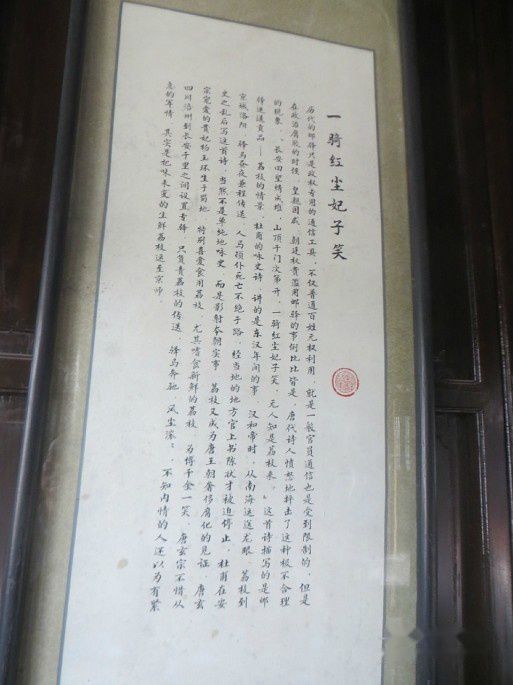 一骑红尘妃子笑
历代的邮驿只是政权专用的通信工具，不仅普通百姓无权利用，就是一般官员通信也是受到限制的，但是
在政治腐败的时候，皇亲国戚、朝廷权贵滥用邮驿的事例比比皆是，唐代诗人愤怒地抨击了这种极不合理
的现象。“长安回望绣成堆，山顶千门次第开，一骑红尘妃子笑，无人知是荔枝来。”这首诗描写的是邮
驿递送贡品——荔枝的情景，杜甫的咏史诗，讲的是东汉年间的事，汉和帝时，从南海运送龙眼、荔枝到
京城洛阳，驿马昼夜兼程传送，人马顿仆死亡不绝于路，经当地的地方官上书陈状才被迫停止，杜甫在安
史之乱后写这首诗，当然不是单纯地咏史，而是影射本朝实事，荔枝又成为唐王朝奢侈腐化的见证。唐玄
宗宠爱的贵妃杨玉环生于蜀地，特别喜爱食用荔枝，尤其嗜食新鲜的荔枝，为博千金一笑，唐玄宗不惜从
四川涪州到长安千里之间设置专驿，只负责荔枝的传送，驿马奔驰，风尘滚滚，不知内情的人还以为有紧
急的军情，其实是把味未变的生鲜荔枝送至京师。